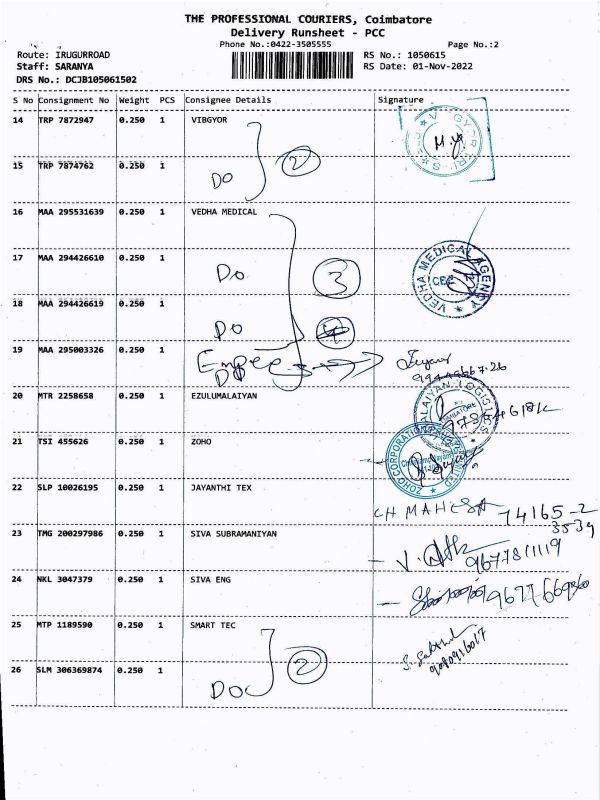 THE PROFESSIONAL COURIERS, Coimbatore
Delivery Runsheet - PCC
Phone No.:0422-3505555
Page No.:2
Route: IRUGURROAD
RS No.: 1050615
Staff: SARANYA
RS Date: 01-Nov-2022
DRS No.: DCJB105061502
S No Consignment No Weight PCS Consignee Details Signature
14 TRP 7872947 0.250 1 VIBGYOR
15 TRP 7874762 0.250 1
DO 2
16 MAA 295531639 0.250 1 VEDHA MEDICAL
17 MAA 294426610 0.250 1
Do 3
VEDHA MEDICAL AGENCY
CBE
18 MAA 294426619 0.250 1
DO 4
19 MAA 295003326 0.250 1
20 MTR 2258658 0.250 1 EZULUMALAIYAN
LOGISTICS
21 TSI 455626 0.250 1 ZOHO
ZOHO CORPORATION PRIVATE LIMITED
22 SLP 10026195 0.250 1 JAYANTHI TEX
CH MAHESH 74165-2
3539
23 TMG 200297986 0.250 1 SIVA SUBRAMANIYAN
9677811119
24 NKL 3047379 0.250 1 SIVA ENG
25 MTP 1189590 0.250 1 SMART TEC
26 SLM 306369874 0.250 1
DO 2